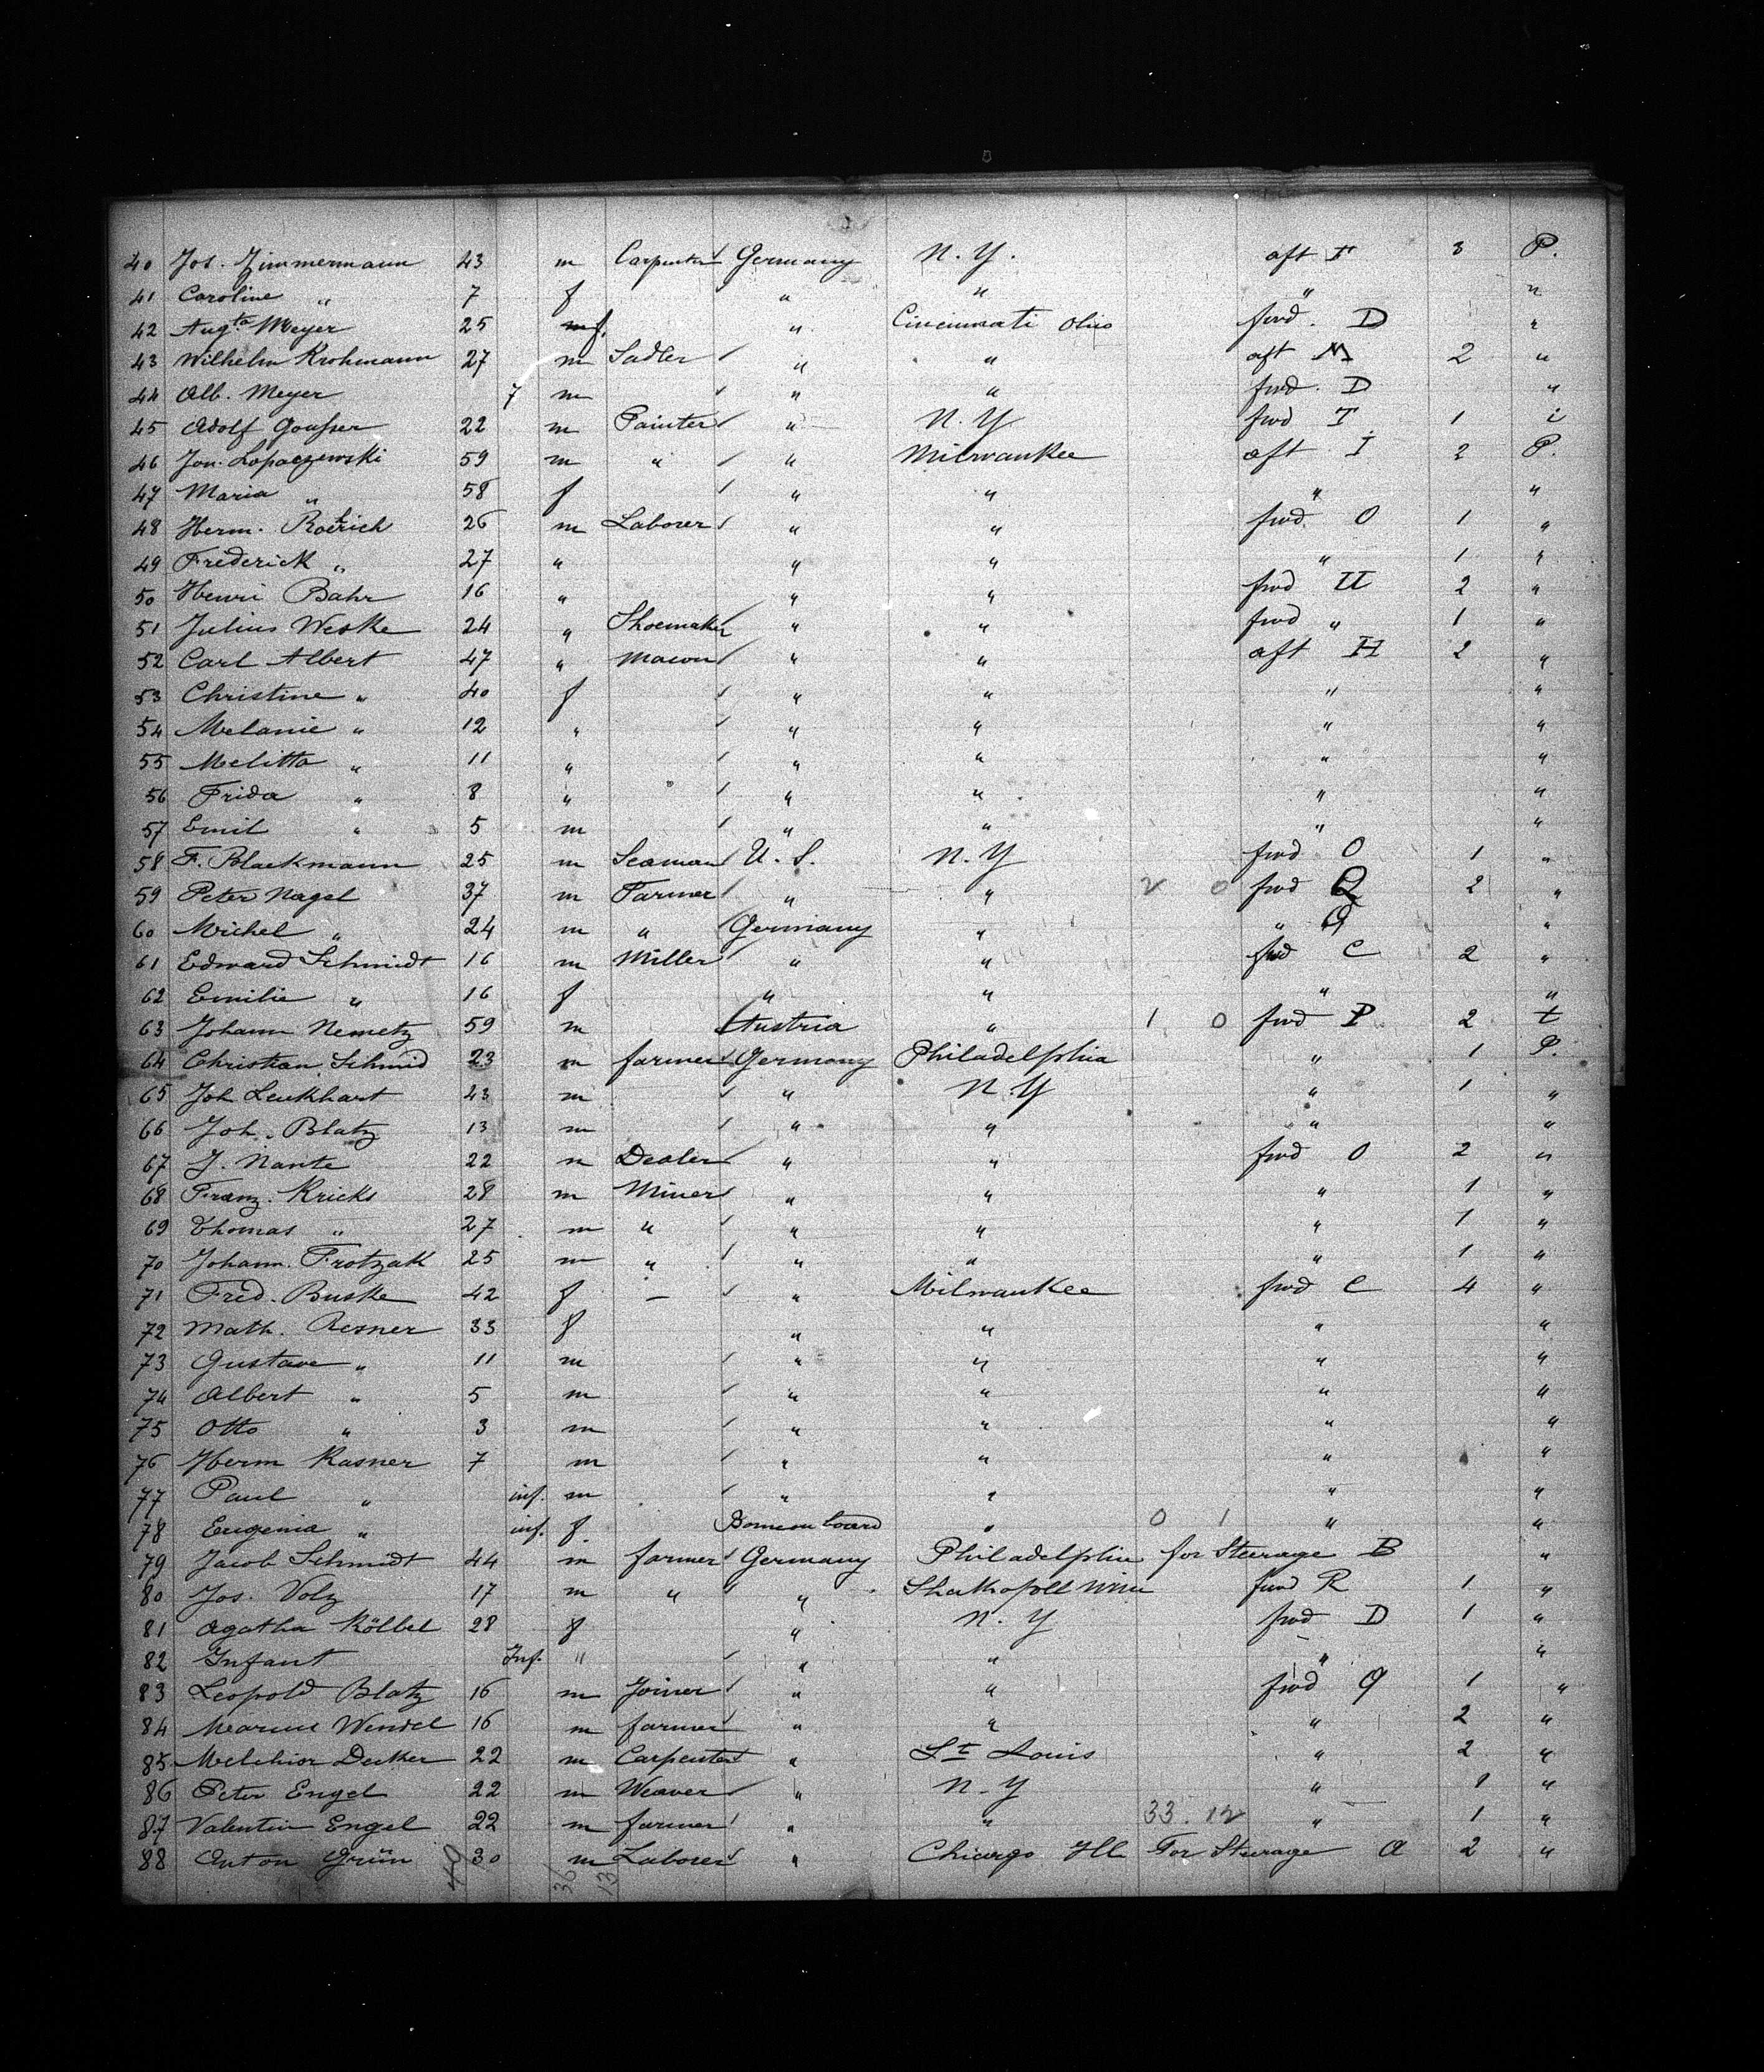 40 Jos. Zimmermann 43 m Carpenter Germany N. Y. aft F 3 P.
41 Caroline " 7 f " " " "
42 Augta Meyer 25 m f. " Cincinnati Ohio fwd. D "
43 Wilhelm Krohmann 27 m Sadler " " aft M 2 "
44 Alb. Meyer 7 m " " fwd. D "
45 Adolf 22 m Painter " N. Y fwd T. 1 i
46 Jon. Lopaczewski 59 m " " Milwaukee aft I 2 P.
47 Maria " 58 f " " " "
48 Herm. Rotrich 26 m Laborer " " fwd. O 1 "
49 Frederick " 27 " " " " 1 "
50 Henri Bahr 16 " " " fwd U 2 "
51 Julius Weske 24 " Shoemaker " " fwd " 1 "
52 Carl Albert 47 " Macon " " aft H 2 "
53 Christine " 40 f " " " "
54 Melanie " 12 " " " " "
55 Melitta " 11 " " " " "
56 Frida " 8 " " " " "
57 Emil " 5 m " " " "
58 F. Blackmann 25 m Seaman U. S. N. Y fwd O 1 "
59 Peter Nagel 37 m Farmer " " 2 0 fwd Q 2 "
60 Michel " 24 m " Germany " " Q "
61 Edward Schmidt 16 m Miller " " fwd C 2 "
62 Emilie " 16 f " " " "
63 Johann Nemetz 59 m Austria " 1 0 fwd P 2 t
64 Christian Schmid 23 m farmer Germany Philadelphia " 1 P.
65 Joh Leukhart 43 m " N. Y " 1 "
66 Joh. Blatz 13 m " " " "
67 J. Nante 22 m Dealer " " fwd O 2 "
68 Franz. Kricks 28 m Miner " " " 1 "
69 Thomas " 27 m " " " " 1 "
70 Johann. Frotzak 25 m " " " " 1 "
71 Fred. Buske 42 f — " Milwaukee fwd C 4 "
72 Math. Resner 33 f " " " "
73 Gustave " 11 m " " " "
74 Albert " 5 m " " " "
75 Otto " 3 m " " " "
76 Herm Kasner 7 m " " " "
77 Paul " inf. m " " " "
78 Eugenia " inf. f. Born on board " 0 1 " "
79 Jacob Schmidt 44 m farmer Germany Philadelphia for Steerage B "
80 Jos. Volz 17 m " " fwd R 1 "
81 Agatha Kölbel 28 f " N. Y fwd D 1 "
82 Infant Inf. " " " " "
83 Leopold Blatz 16 m Joiner " " fwd Q 1 "
84 Wendel 16 m farmer " " " 2 "
85 Melchior Decker 22 m Carpenter " St Louis " 2 "
86 Peter Engel 22 m Weaver " N. Y " 1 "
87 Valentin Engel 22 m farmer " " 33. 12 " 1 "
88 Anton Grün 30 m Laborer " Chicargo Ill For Sturage A 2 "
49 36 13